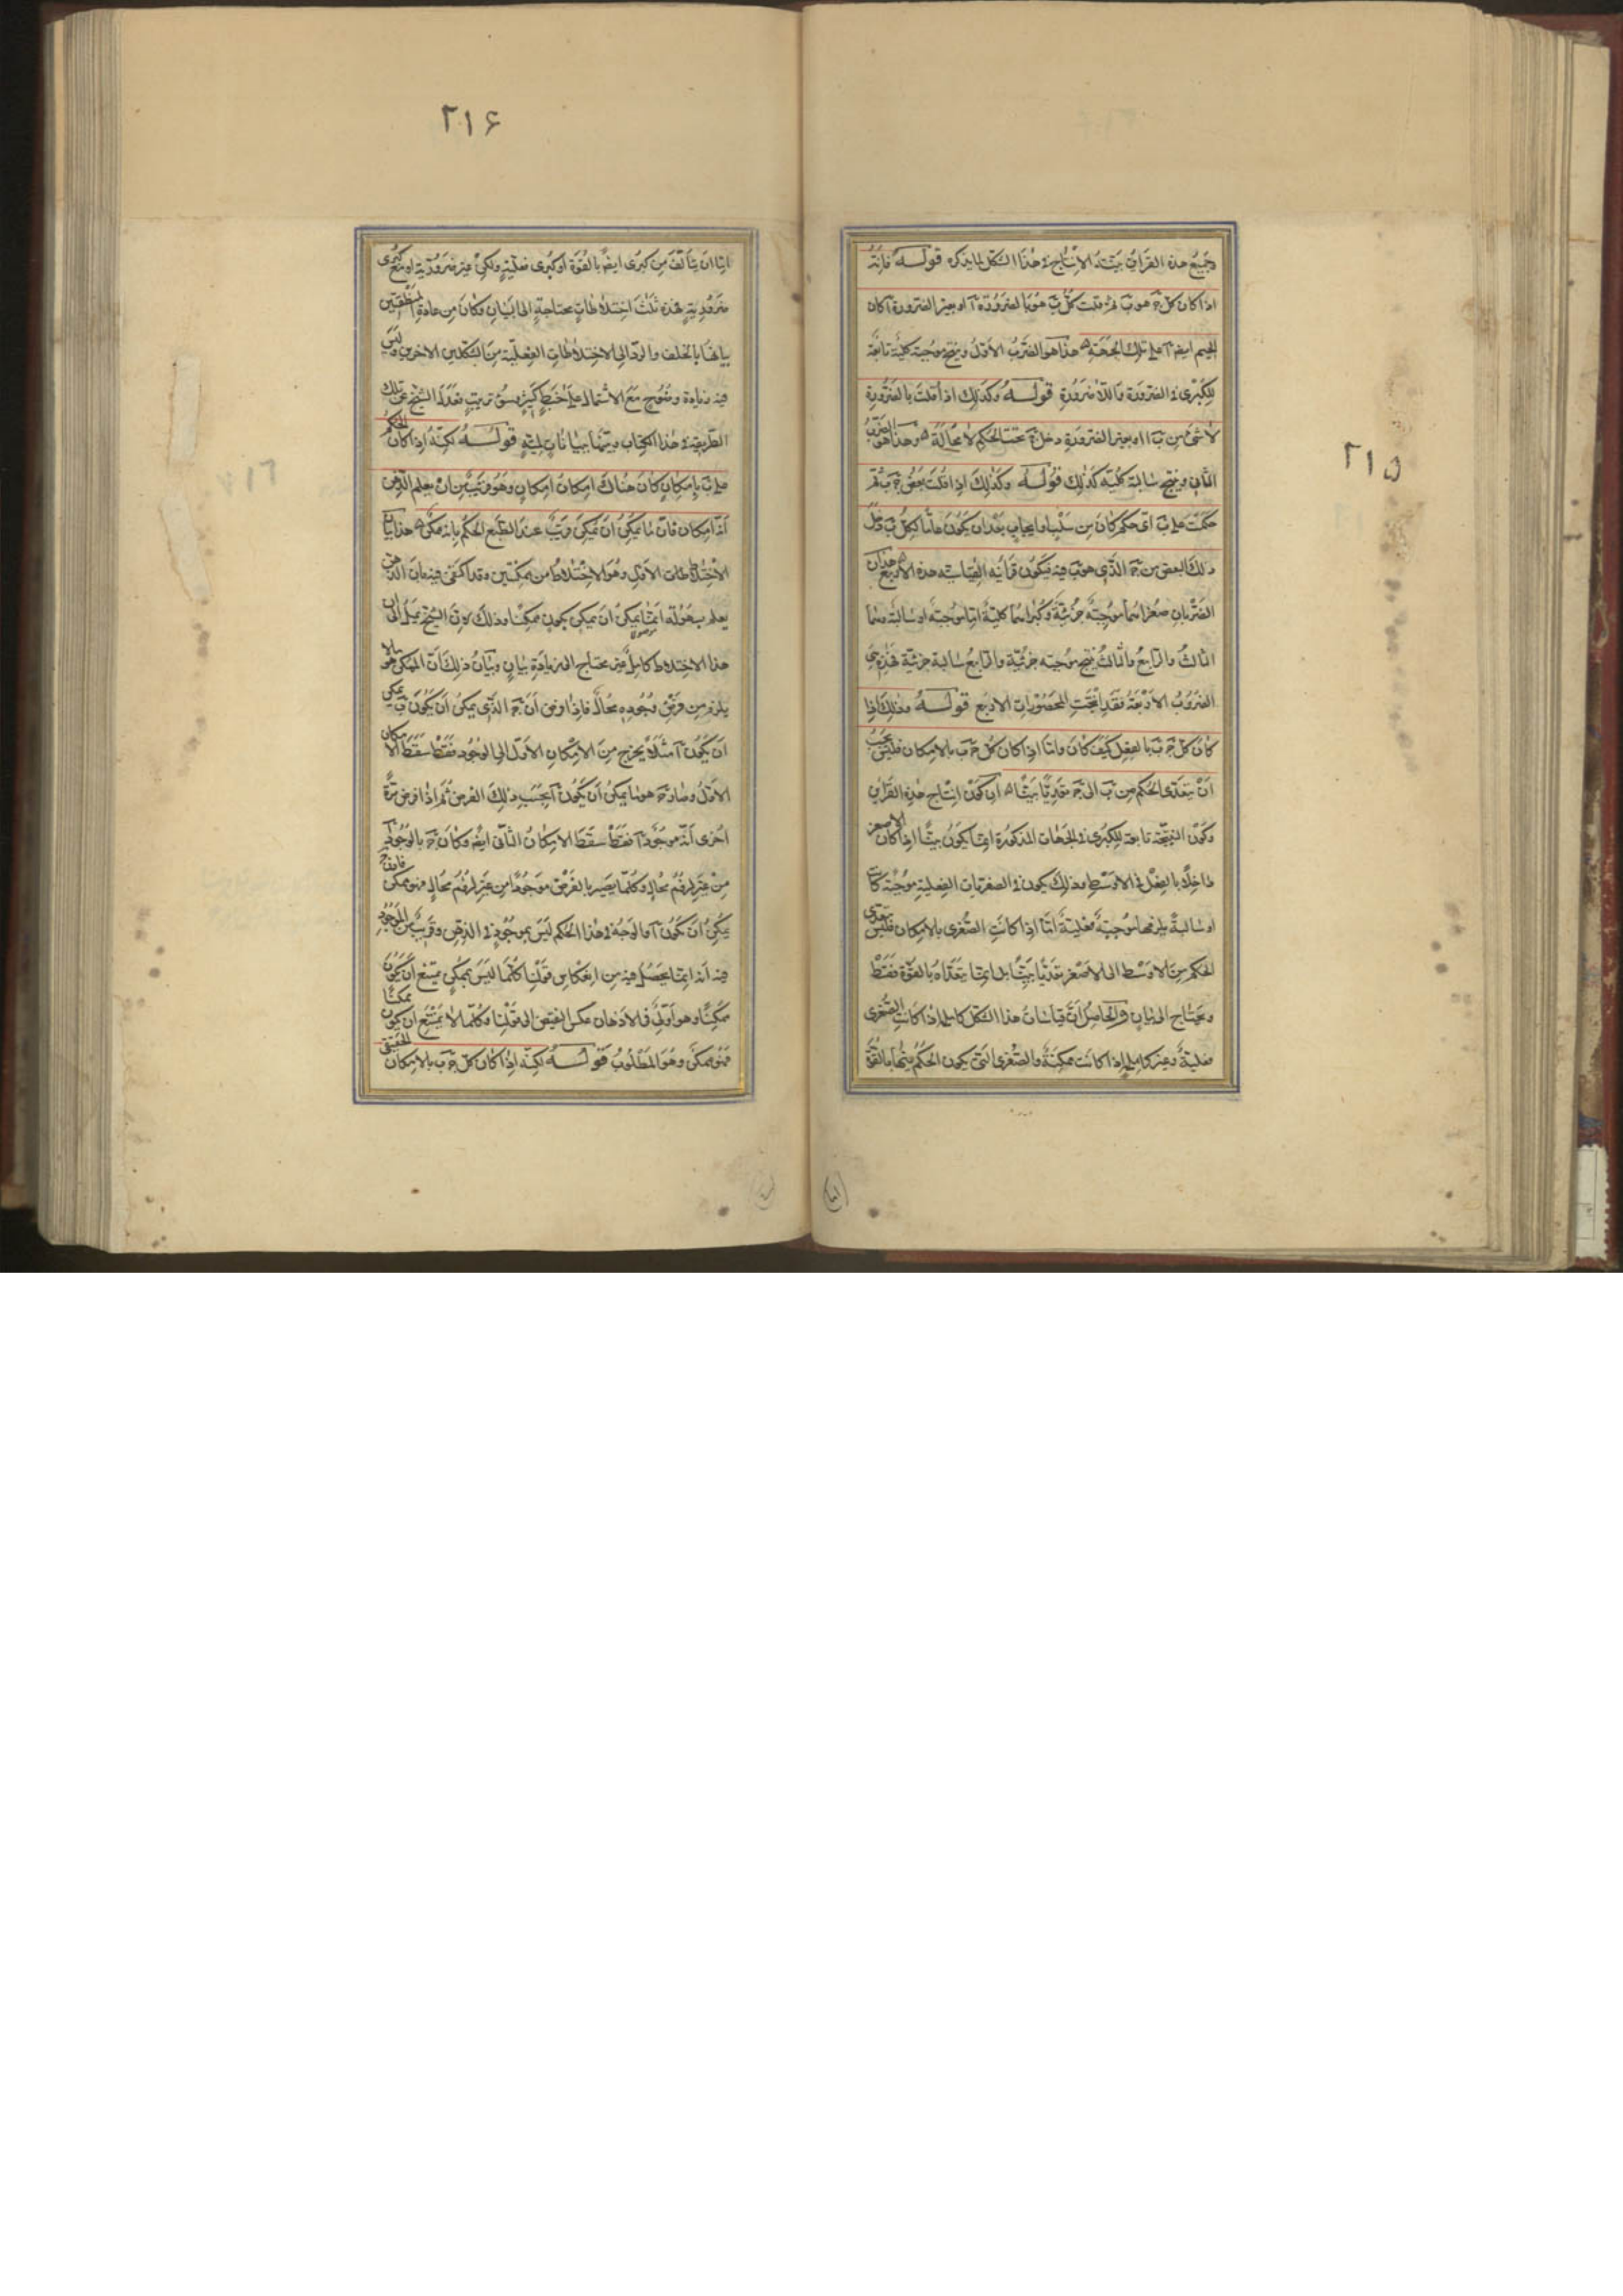 ٢١٥
وجميع هذه القرائن بينة الانتاج في هذا الشكل لما يذكره قوله فانه
اذا كان كل ج هو ب ثم قلت كل ب هو بالضرورة آ او بغير الضرورة آ كان
الجيم ايضا آ على تلك الجهة هذا هو الضرب الاول وينتج موجبة كلية تابعة
للكبرى في الضرورة واللاضرورة قوله وكذلك اذا قلت بالضرورة
لا شئ من ب آ او بغير الضرورة دخل ج تحت الحكم لا محالة وهذا هو الضرب
الثاني وينتج سالبة كلية كذلك قوله وكذلك اذا قلت بعض ج ب ثم
حكمت على ب اى حكم كان من سلب او ايجاب بعد ان يكون عاما لكل ب دخل
ذلك البعض من ج الذي هو ب فيه فيكون قرائنه القياسية هذه الاربع هذان
الضربان صغراهما موجبة جزئية وكبراهما كلية اما موجبة او سالبة وهما
الثالث والرابع والثالث ينتج موجبة جزئية والرابع سالبة جزئية فهذه هي
الضروب الاربعة فقد انتجت المحصورات الاربع قوله وذلك اذا
كان كل ج ب بالفعل كيف كان واما اذا كان كل ج ب بالامكان فليس يجب
ان يتعدى الحكم من ب الى ج تعديا بينا اى كون انتاج هذه القرائن
وكون النتيجة تابعة للكبرى في الجهات المذكورة انما يكون بينا اذا كان الاصغر
داخلا بالفعل في الاوسط وذلك يكون في الصغريات الفعلية موجبة كانت
او سالبة يلزمها موجبة فعلية اما اذا كانت الصغرى بالامكان فليس يتعدى
الحكم من الاوسط الى الاصغر تعديا بينا بل انما يتعداه بالقوة فقط
ويحتاج الى بيان والحاصل ان قياسات هذا الشكل كاملة اذا كانت الصغرى
فعلية وغير كاملة اذا كانت ممكنة والصغرى التي يكون الحكم فيها بالقوة
٢١۶
اما ان يتألف من كبرى ايضا بالقوة او كبرى فعلية ولكن غير ضرورية او مع كبرى
ضرورية فهذه ثلث اختلاطات محتاجة الى البيان وكان من عادة المنطقيين
بيانها بالخلف والرد الى الاختلاطات الفعلية من الشكلين الاخرين وليس
فيه زيادة وضوح مع الاشتمال على خبط كثير وسوء ترتيب فعدل الشيخ عن تلك
الطريقة في هذا الكتاب وبينها ببيانات لمية قوله لكنه اذا كان الحكم
على ب بامكان كان هناك امكان امكان وهو قريب من ان يعلم الذهن
انه امكان فان ما يمكن ان يمكن قريب عند الطبع الحكم بانه ممكن هذا بيان
الاختلاطات الاول وهو الاختلاط من ممكنتين وقد اكتفى فيه بان الذهن
يعلم بسهولة ان ما يمكن ان يمكن يكون ممكنا وذلك لان الشيخ يميل الى ان
هذا الاختلاط كامل غير محتاج الى زيادة بيان وبيان ذلك ان الممكن هو ما لا
يلزم من فرض وجوده محال فاذا فرض ان ج الذي يمكن ان يكون ب يمكن
ان يكون آ مثلا يخرج من الامكان الاول الى الوجود فقط سقط الامكان
الاول وصار ج هو ما يمكن ان يكون آ بحسب ذلك الفرض ثم اذا فرض مرة
اخرى انه موجود آ فقط سقط الامكان الثاني ايضا وكان ج بالوجود آ
من غير لزوم محال وكلما يصير بالفرض موجودا من غير لزوم محال فهو ممكن فاذن ج
يمكن ان يكون آ والوجه في هذا الحكم ليس بموجود في الذهن وقريب من الموجود
فيه انه انما يحصل فيه من انعكاس قولنا كلما ليس بممكن يمتنع ان يكون
ممكنا وهو اولى في الاذهان عكس النقيض الى قولنا وكلما لا يمتنع ان يكون ممكنا
فهو ممكن وهو المطلوب قوله لكنه اذا كان كل ج ب بالامكان الحقيقى